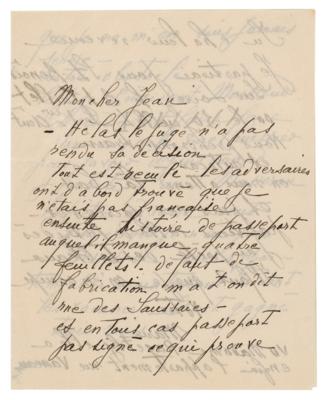 Moncher Jean
- Helas le juge n'a pas
rendu sa decision
Tout est les adversaires
ont d'abord trouvé que je
n'etais pas française
ensuite histoire de passeport
auquel il manque quatre
feuillets. defaut de
fabrication m'a t'on dit
rue des Saussaies -
et en tous cas passeport
pas signé ce qui prouve